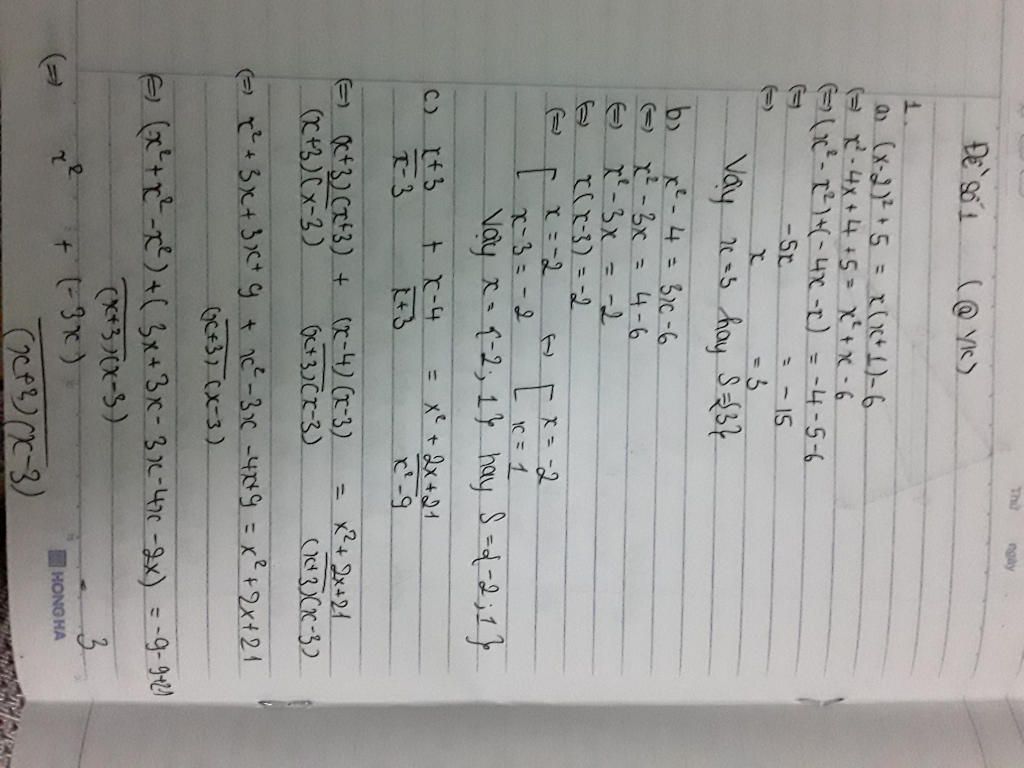 Đề số 1 (@ VK)
1.
a) (x-2)² + 5 = x(x+1)-6
(=) x² - 4x + 4 + 5 = x² + x - 6
(=) (x² - x²) + (-4x - x) = -4 - 5 - 6
(=) -5x = -15
(=) x = 3
Vậy x = 3 hay S={3}
b) x² - 4 = 3x - 6
(=) x² - 3x = 4 - 6
(=) x² - 3x = -2
(=) x(x-3) = -2
(=) [ x = -2 (=) [ x = -2
x-3 = -2 x = 1
Vậy x = {-2, 1} hay S = {-2; 1}
c) x+3 + x-4 = x² + 2x + 21
x-3 x+3 x² - 9
(=) (x+3)(x+3) + (x-4)(x-3) = x² + 2x + 21
(x+3)(x-3) (x+3)(x-3) (x+3)(x-3)
(=) x² + 3x + 3x + 9 + x² - 3x - 4x + 9 = x² + 2x + 21
(x+3)(x-3)
(=) (x² + x² - x²) + (3x + 3x - 3x - 4x - 2x) = -9 - 9 + 21
(x+3)(x-3)
(=) x² + (-3x) 3
(x+3)(x-3)
HONG HA
Thứ ngày